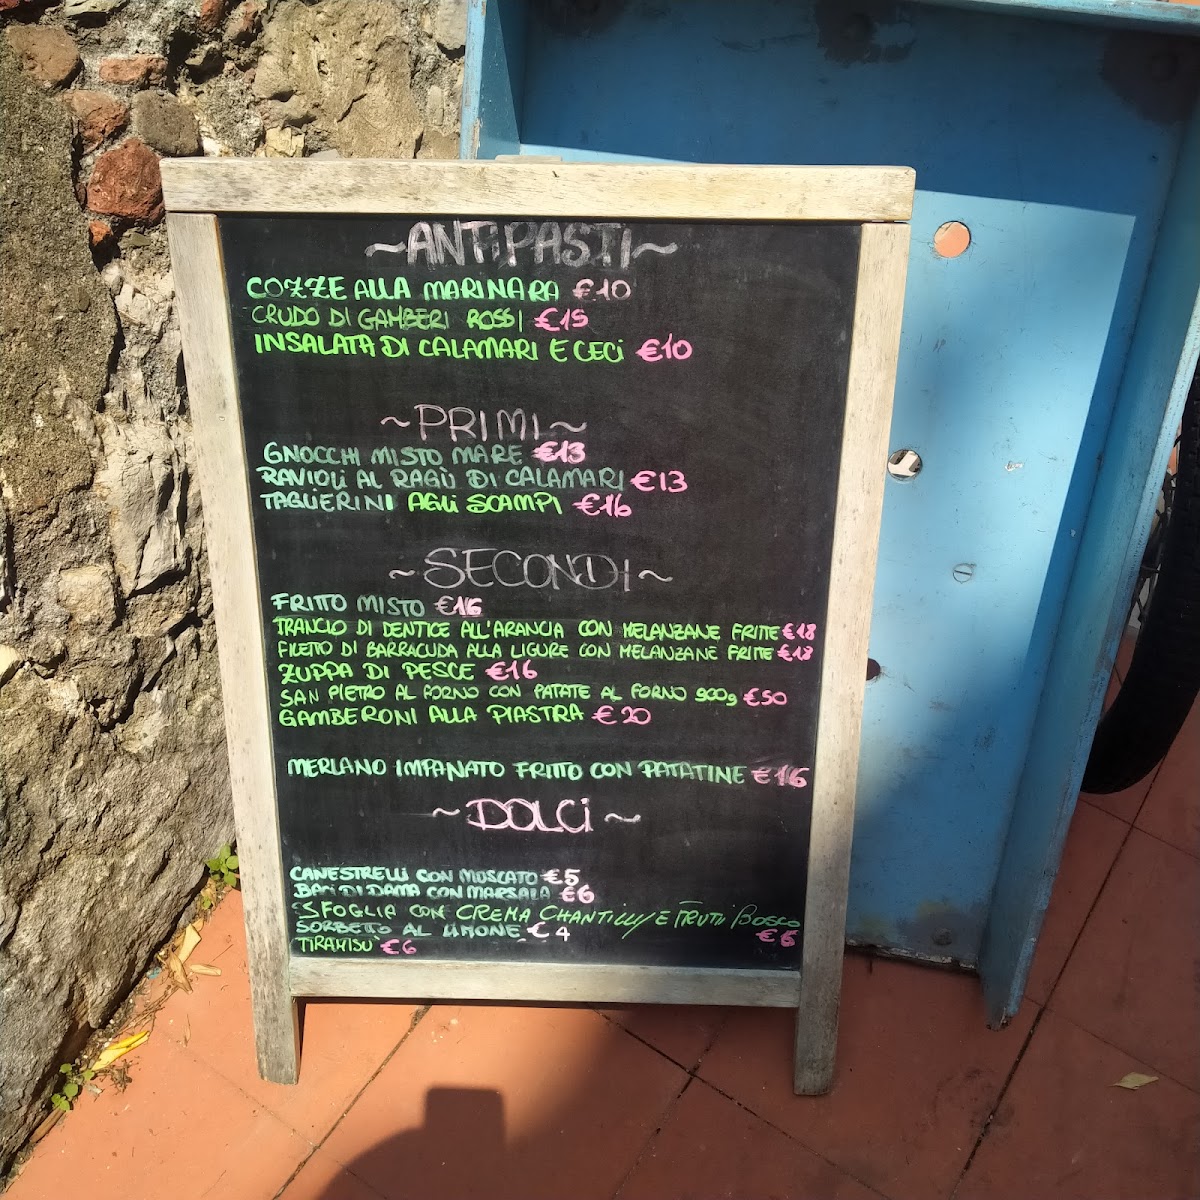 ~ANTIPASTI~
COZZE ALLA MARINARA €10
CRUDO DI GAMBERI ROSSI €15
INSALATA DI CALAMARI E CECI €10
~PRIMI~
GNOCCHI MISTO MARE €13
RAVIOLI AL RAGÙ DI CALAMARI €13
TAGLIERINI AGLI SCAMPI €16
~SECONDI~
FRITTO MISTO €16
TRANCIO DI DENTICE ALL'ARANCIA CON MELANZANE FRITTE €18
FILETTO DI BARRACUDA ALLA LIGURE CON MELANZANE FRITTE €18
ZUPPA DI PESCE €16
SAN PIETRO AL FORNO CON PATATE AL FORNO 900g €50
GAMBERONI ALLA PIASTRA €20
MERLANO IMPANATO FRITTO CON PATATINE €16
~DOLCI~
CANESTRELLI CON MOSCATO €5
BACI DI DAMA CON MARSALA €6
SFOGLIA CON CREMA CHANTILLY E FRUTTI BOSCO
SORBETTO AL LIMONE €4
TIRAMISÙ €6